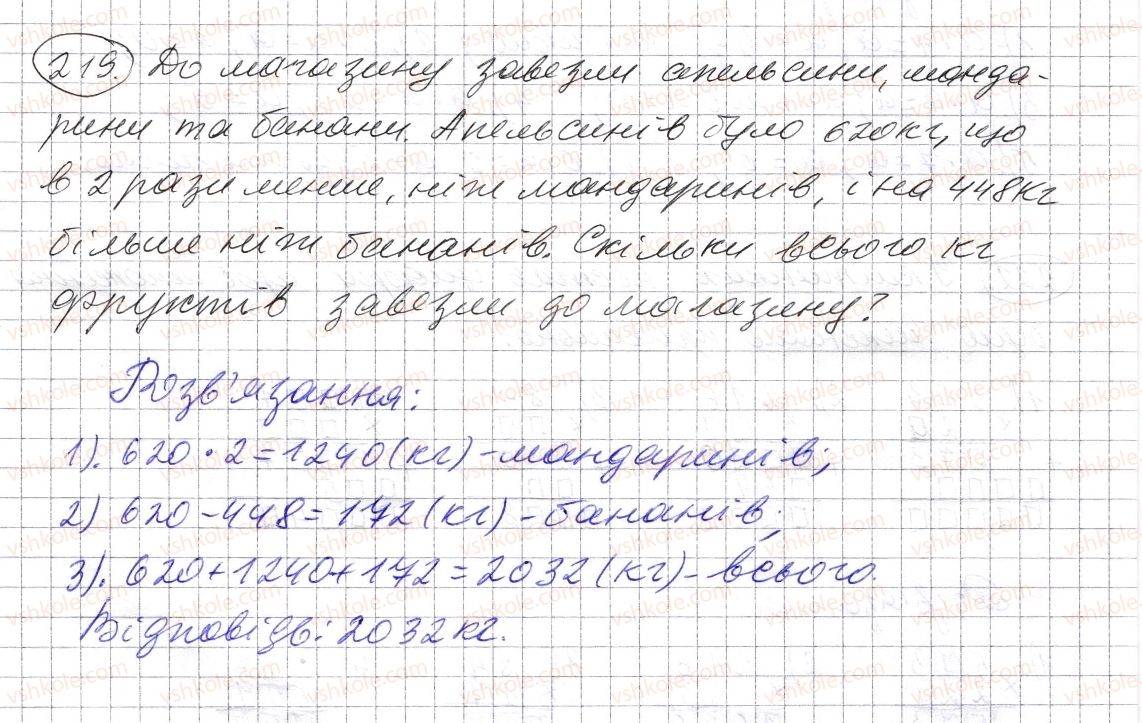 219. До магазину завезли апельсини, манда-
рини та банани. Апельсинів було 620кг, що
в 2 рази менше, ніж мандаринів, і на 448кг
більше ніж бананів. Скільки всього кг
фруктів завезли до магазину?
Розв'язання:
1). 620 · 2 = 1240 (кг) - мандаринів;
2) 620 - 448 = 172 (кг) - бананів;
3). 620 + 1240 + 172 = 2032 (кг) - всього.
Відповідь: 2032 кг.